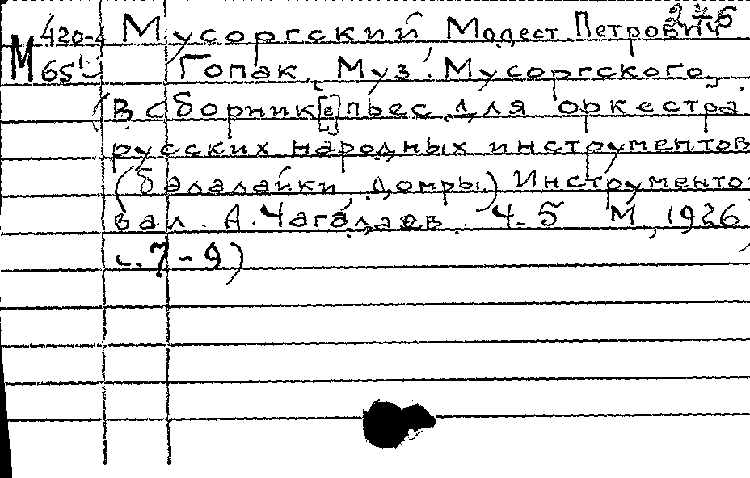 М 420-
65
2 3/4 5
Мусоргский Модест Петрович
Гопак. Муз. Мусоргского,
(В сборник[е] пьес для оркестра
русских народных инструментов
(балалайки, домры) Инструменто-
вал А. Чагадаев. Ч. 5 М, 1926,
с. 7-9)